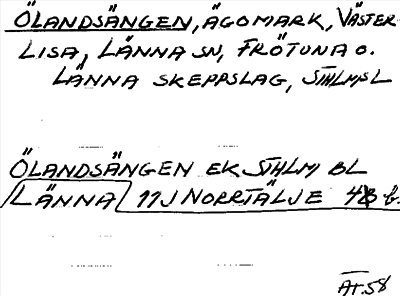 ÖLANDSÄNGEN, ÄGOMARK, VÄSTER-
LISA, LÄNNA SN, FRÖTUNA O.
LÄNNA SKEPPSLAG, STHLMSL
ÖLANDSÄNGEN EK STHLM BL
LÄNNA 11J NORRTÄLJE 4 b.
ÄT.58